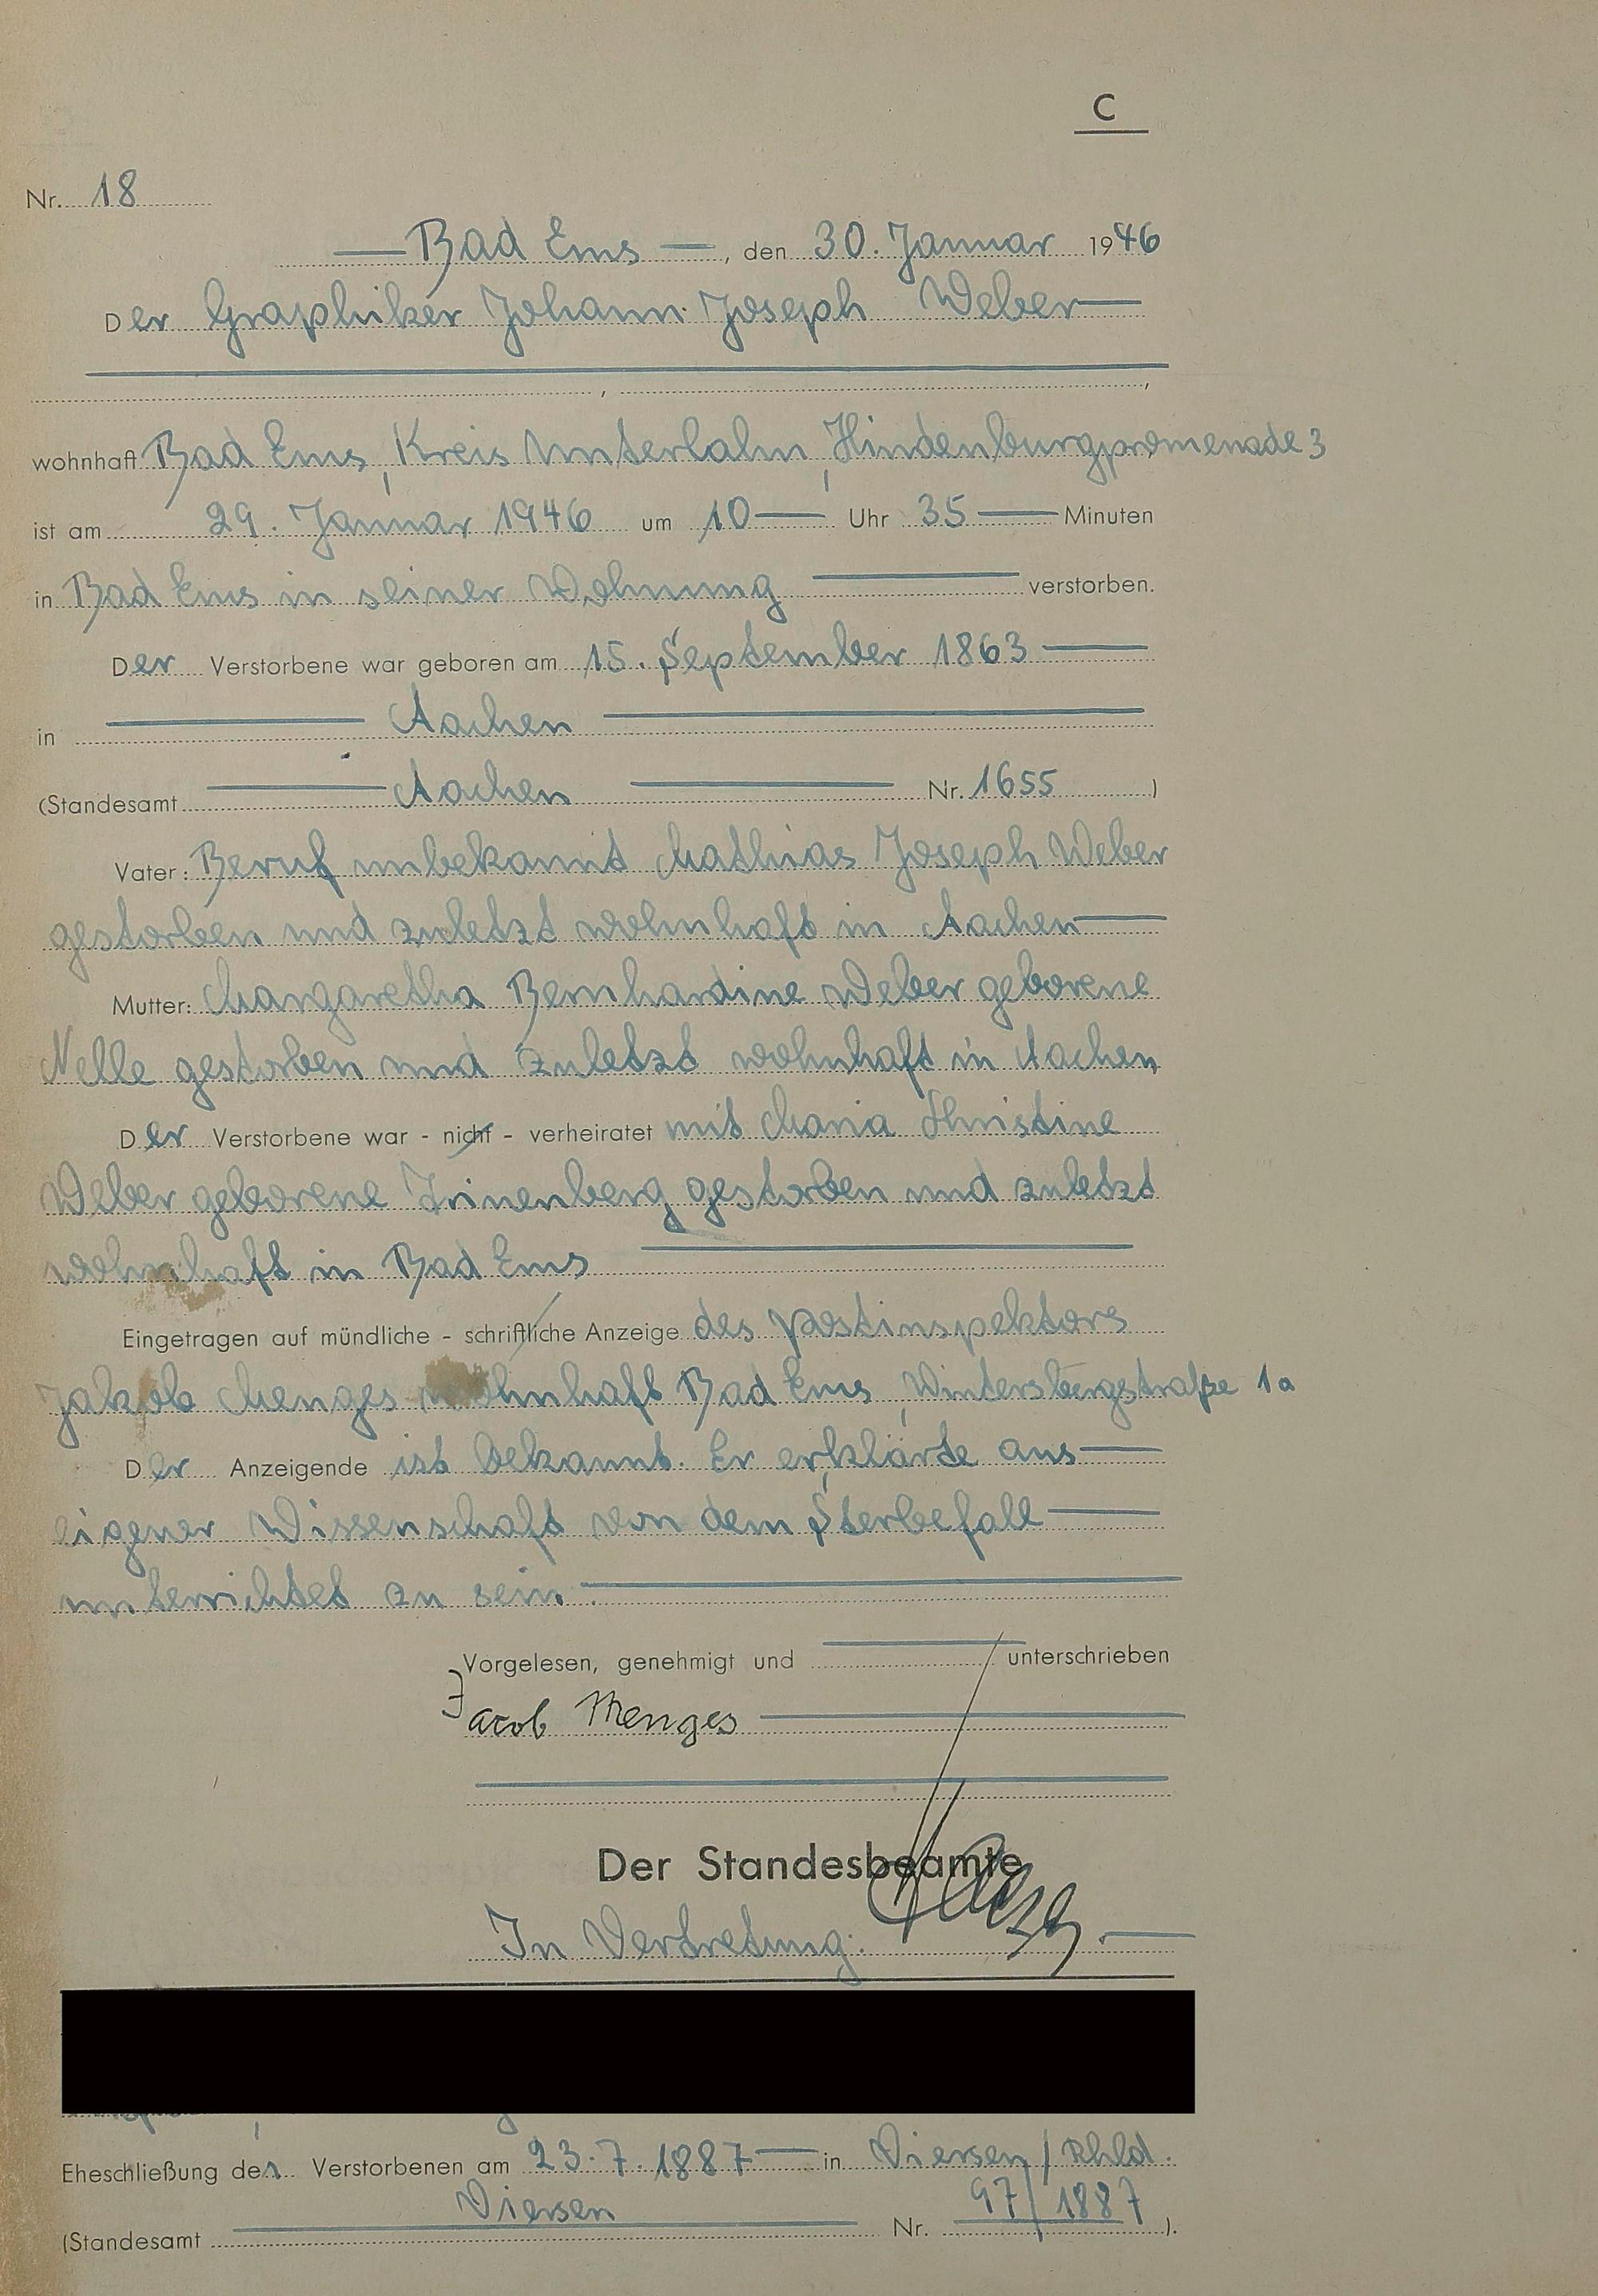 C
Nr. 18
Bad Ems, den 30. Januar 1946
Der Graphiker Johann Joseph Weber
wohnhaft Bad Ems, Kreis Unterlahn, Hindenburgpromenade 3
ist am 29. Januar 1946 um 10 Uhr 35 Minuten
in Bad Ems in seiner Wohnung verstorben.
Der Verstorbene war geboren am 15. September 1863
in Aachen
(Standesamt Aachen Nr. 1655)
Vater: Beruf unbekannt Mathias Joseph Weber
gestorben und zuletzt wohnhaft in Aachen
Mutter: Margaretha Bernhardine Weber geborene
Nelle gestorben und zuletzt wohnhaft in Aachen
Der Verstorbene war - nicht - verheiratet mit Maria Christine
Weber geborene gestorben und zuletzt
wohnhaft in Bad Ems
Eingetragen auf mündliche - schriftliche Anzeige des Postinspektors
Jakob Menges wohnhaft Bad Ems, Wintersbergstraße 1a
Der Anzeigende ist bekannt. Er erklärte aus
eigener Wissenschaft von dem Sterbefall
unterrichtet zu sein.
Vorgelesen, genehmigt und unterschrieben
Jacob Menges
Der Standesbeamte
In Vertretung:
Eheschließung des Verstorbenen am 23.7.1887 in Viersen/Rhld.
(Standesamt Viersen Nr. 97/1887).